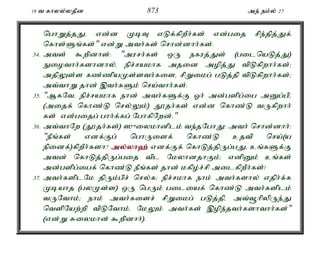 19 வ காலல்லதீன 873 அந் நம்ல் 27
பொறுத்தது. என்ன முடிவு எடுக்கிறீர்கள் என்பதை சிந்தித்துக்
கொள்ளுங்கள்" என்று அவர்கள் சொன்னார்கள்.
34. அவள் கூறினாள்: "அரசர்கள் ஒரு நகரத்துள் (படையெடுத்து)
நுழைவார்களானால், நிச்சயமாக அதனை அழித்து விடுகிறார்கள்;
அதிலுள்ள கண்ணியமுள்ளவர்களை, சிறுமைப் படுத்தி விடுகிறார்கள்;
அவ்வாறு தான் இவர்களும் செய்வார்கள்.
35. "ஆகவே, நிச்சயமாக நான் அவர்களுக்கு ஓர் அன்பளிப்பை அனுப்பி,
(அதைக் கொண்டு செல்லும்) தூதர்கள் என்ன கொண்டு வருகிறார்
கள் என்பதைப் பார்க்கப் போகிறேன்."
36. அவ்வாறே (தூதர்கள்) ஸுலைமானிடம் வந்தபோது; அவர் சொன்னார்:
"நீங்கள் எனக்குப் பொருளைக் கொண்டு உதவி செய்(ய
நினைக்)கிறீர்களா? அல்லாஹ் எனக்குக் கொடுத்திருப்பது, உங்களுக்கு
அவன் கொடுத்திருப்பதை விட மேலானதாகும்; எனினும் உங்கள்
அன்பளிப்பைக் கொண்டு நீங்கள் தான் மகிழ்ச்சி அடைகிறீர்கள்!
37. அவர்களிடமே திரும்பிச் செல்க; நிச்சமாக நாம் அவர்களால் எதிர்க்க
முடியாத (பலமுள்ள) ஒரு பெரும் படையைக் கொண்டு அவர்களிடம்
வருவோம்; நாம் அவர்களைச் சிறுமைப் படுத்தி, அவ்வூரிலிருந்து
வெளியேற்றி விடுவோம், மேலும் அவர்கள் இழிந்தவர்களாவார்கள்"
(என்று ஸுலைமான் கூறினார்).